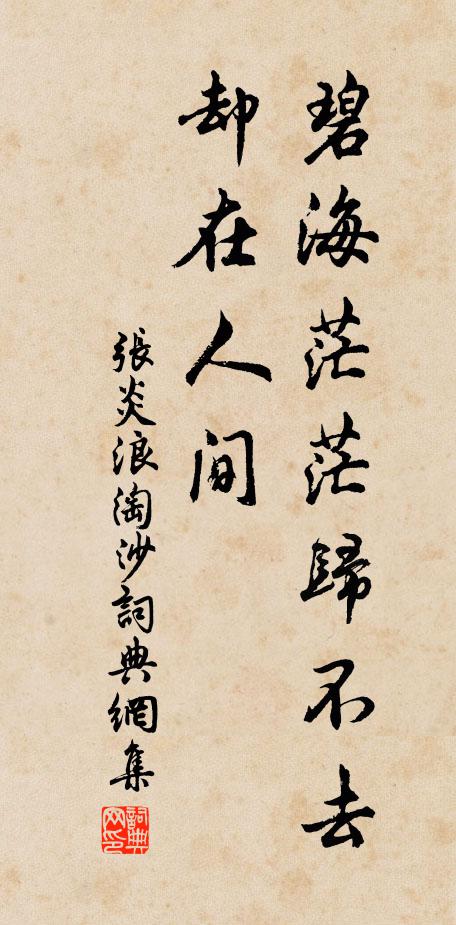 碧海茫茫歸不去
却在人间
張炎浪淘沙詞典網集
詞典网印